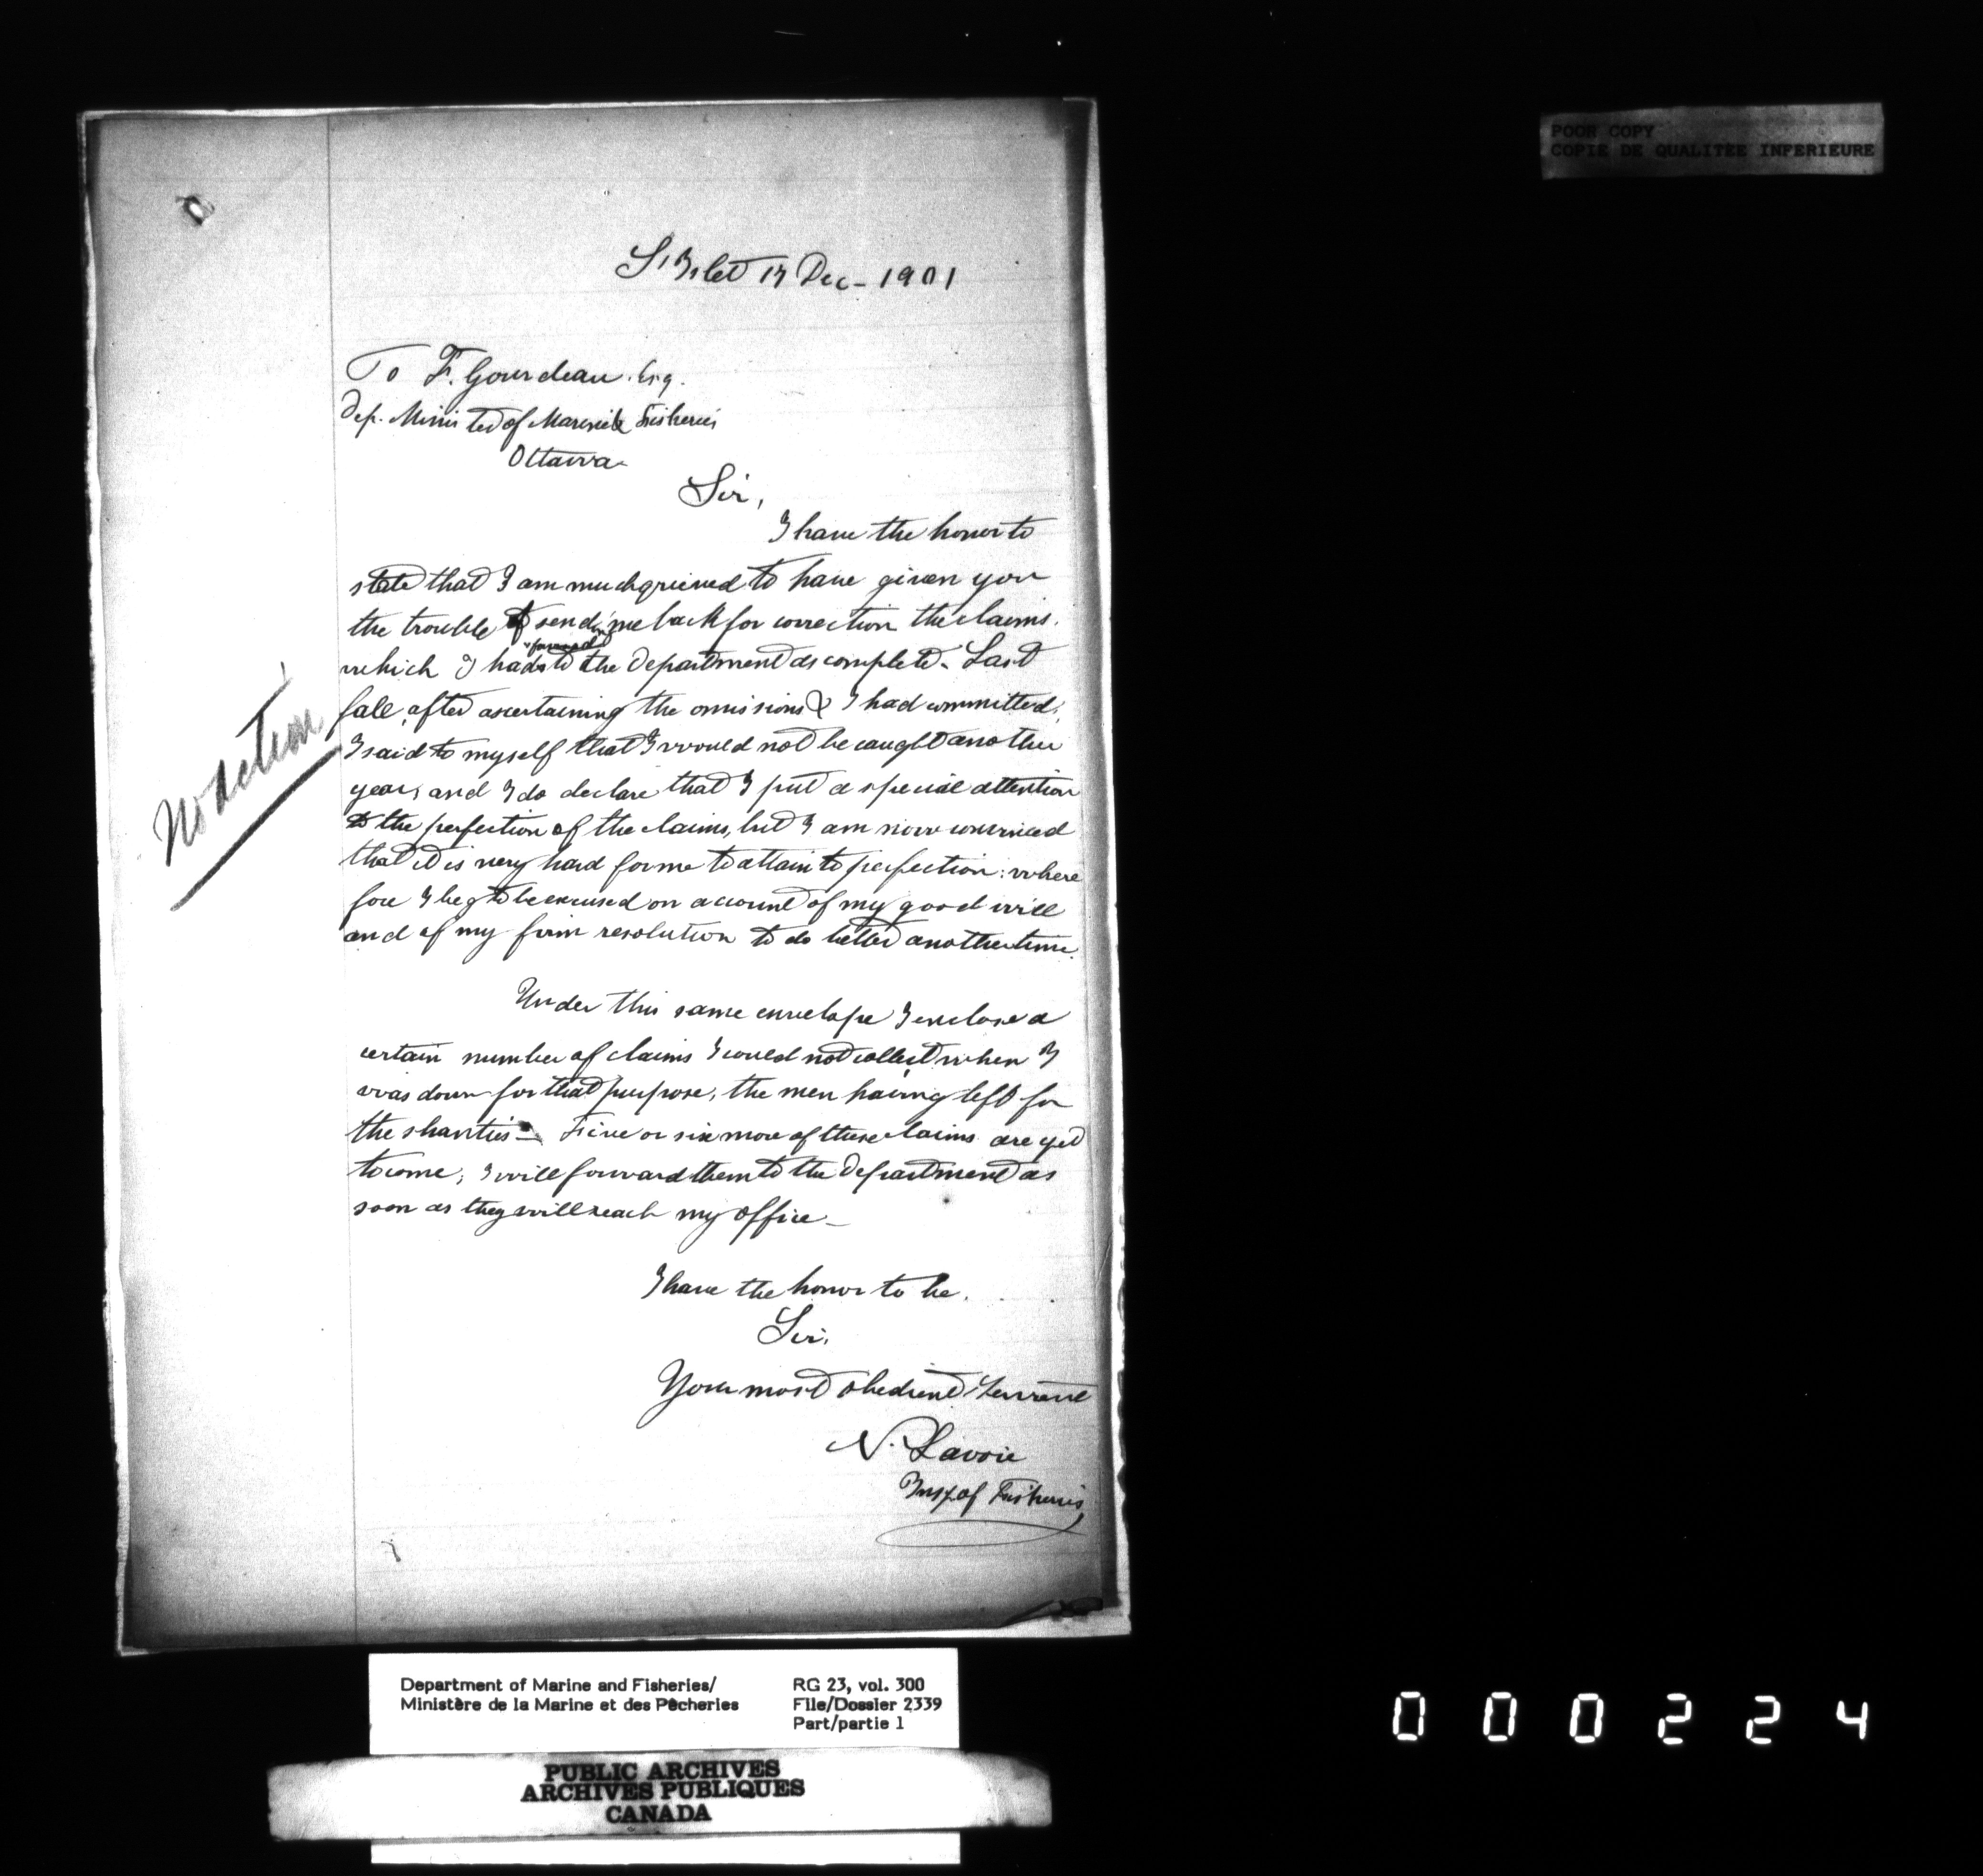 POOR COPY
COPIE DE QUALITEE INFERIEURE
L'Islet 17 Dec - 1901
To F. Gourdeau. Esq.
Dep. Minister of Marine & Fisheries
Ottawa
Sir,
I have the honor to
state that I am much grieved to have given you
the trouble of sending me back for correction the claims.
forward
which I had to the Department as complete. Last
fall, after ascertaining the omissions I had committed,
I said to myself that I would not be caught another
year, and I do declare that I put a special attention
to the perfection of the claims, but I am now convinced
that it is very hard for me to attain to perfection: where
fore I beg to be excused on account of my good will
and of my firm resolution to do better another time.
No action
Under this same envelope I enclose a
certain number of claims I could not collect when I
was down for that purpose, the men having left for
the shanties - Five or six more of these claims are yet
to come, I will forward them to the Department as
soon as they will reach my office -
I have the honor to be.
Sir,
Your most obedient Servant
N. Lavoie
Insp. of Fisheries
Department of Marine and Fisheries/
Ministère de la Marine et des Pêcheries
RG 23, vol. 300
File/Dossier 2339
Part/partie 1
PUBLIC ARCHIVES
ARCHIVES PUBLIQUES
CANADA
000224